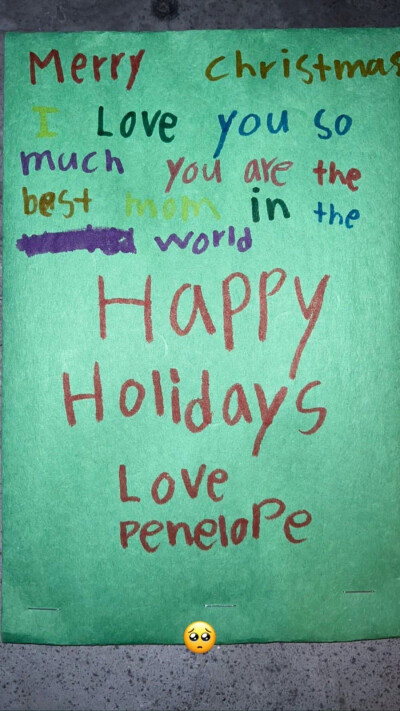 Merry Christmas
I Love you so
much you are the
best mom in the
world
Happy
Holidays
Love
Penelope